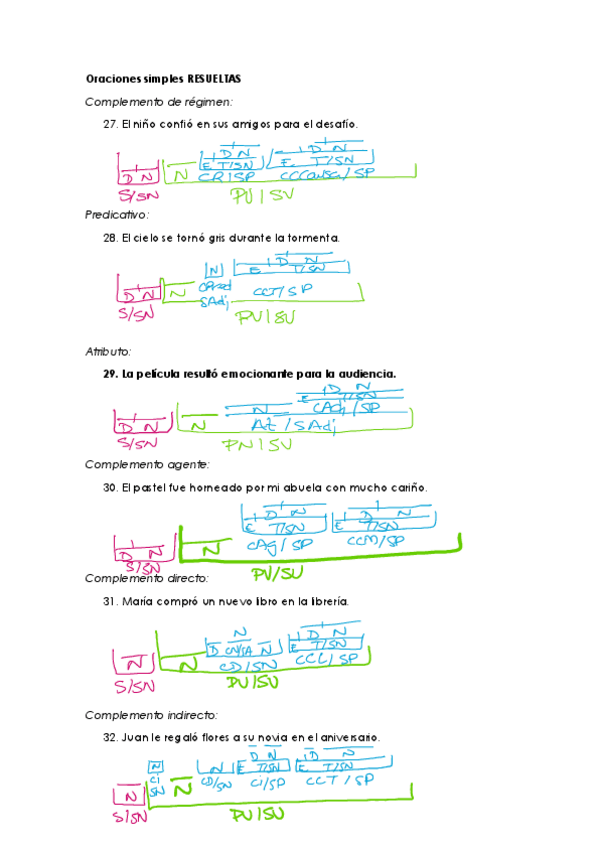 Oraciones simples RESUELTAS
Complemento de régimen:
27. El niño confió en sus amigos para el desafío.
D N D N
D N N E T/SN E T/SN
S/SN CR/SP CCCausa/SP
PV/SV
Predicativo:
28. El cielo se tornó gris durante la tormenta.
N D N
E T/SN
D N N CPred CCT/SP
S/SN SAdj
PV/SV
Atributo:
29. La película resultó emocionante para la audiencia.
D N
E T/SN
N CAdj/SP
D N N At/SAdj
S/SN PN/SV
Complemento agente:
30. El pastel fue horneado por mi abuela con mucho cariño.
D N D N
E T/SN E T/SN
D N N CAg/SP CCM/SP
S/SN
PV/SV
Complemento directo:
31. María compró un nuevo libro en la librería.
N D N
D CN/SA N E T/SN
N N CD/SN CCL/SP
S/SN PV/SV
Complemento indirecto:
32. Juan le regaló flores a su novia en el aniversario.
D N D N
N N E T/SN E T/SN
CI CD/SN CI/SP CCT/SP
N SN N
S/SN PV/SV